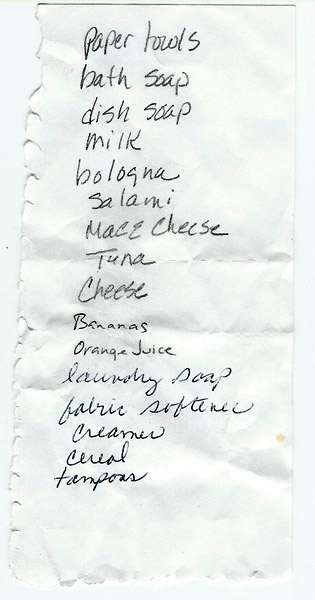 paper towls
bath soap
dish soap
milk
bologna
salami
Mac & Cheese
Tuna
Cheese
Bananas
Orange Juice
laundry soap
fabric softener
creamer
cereal
tampons